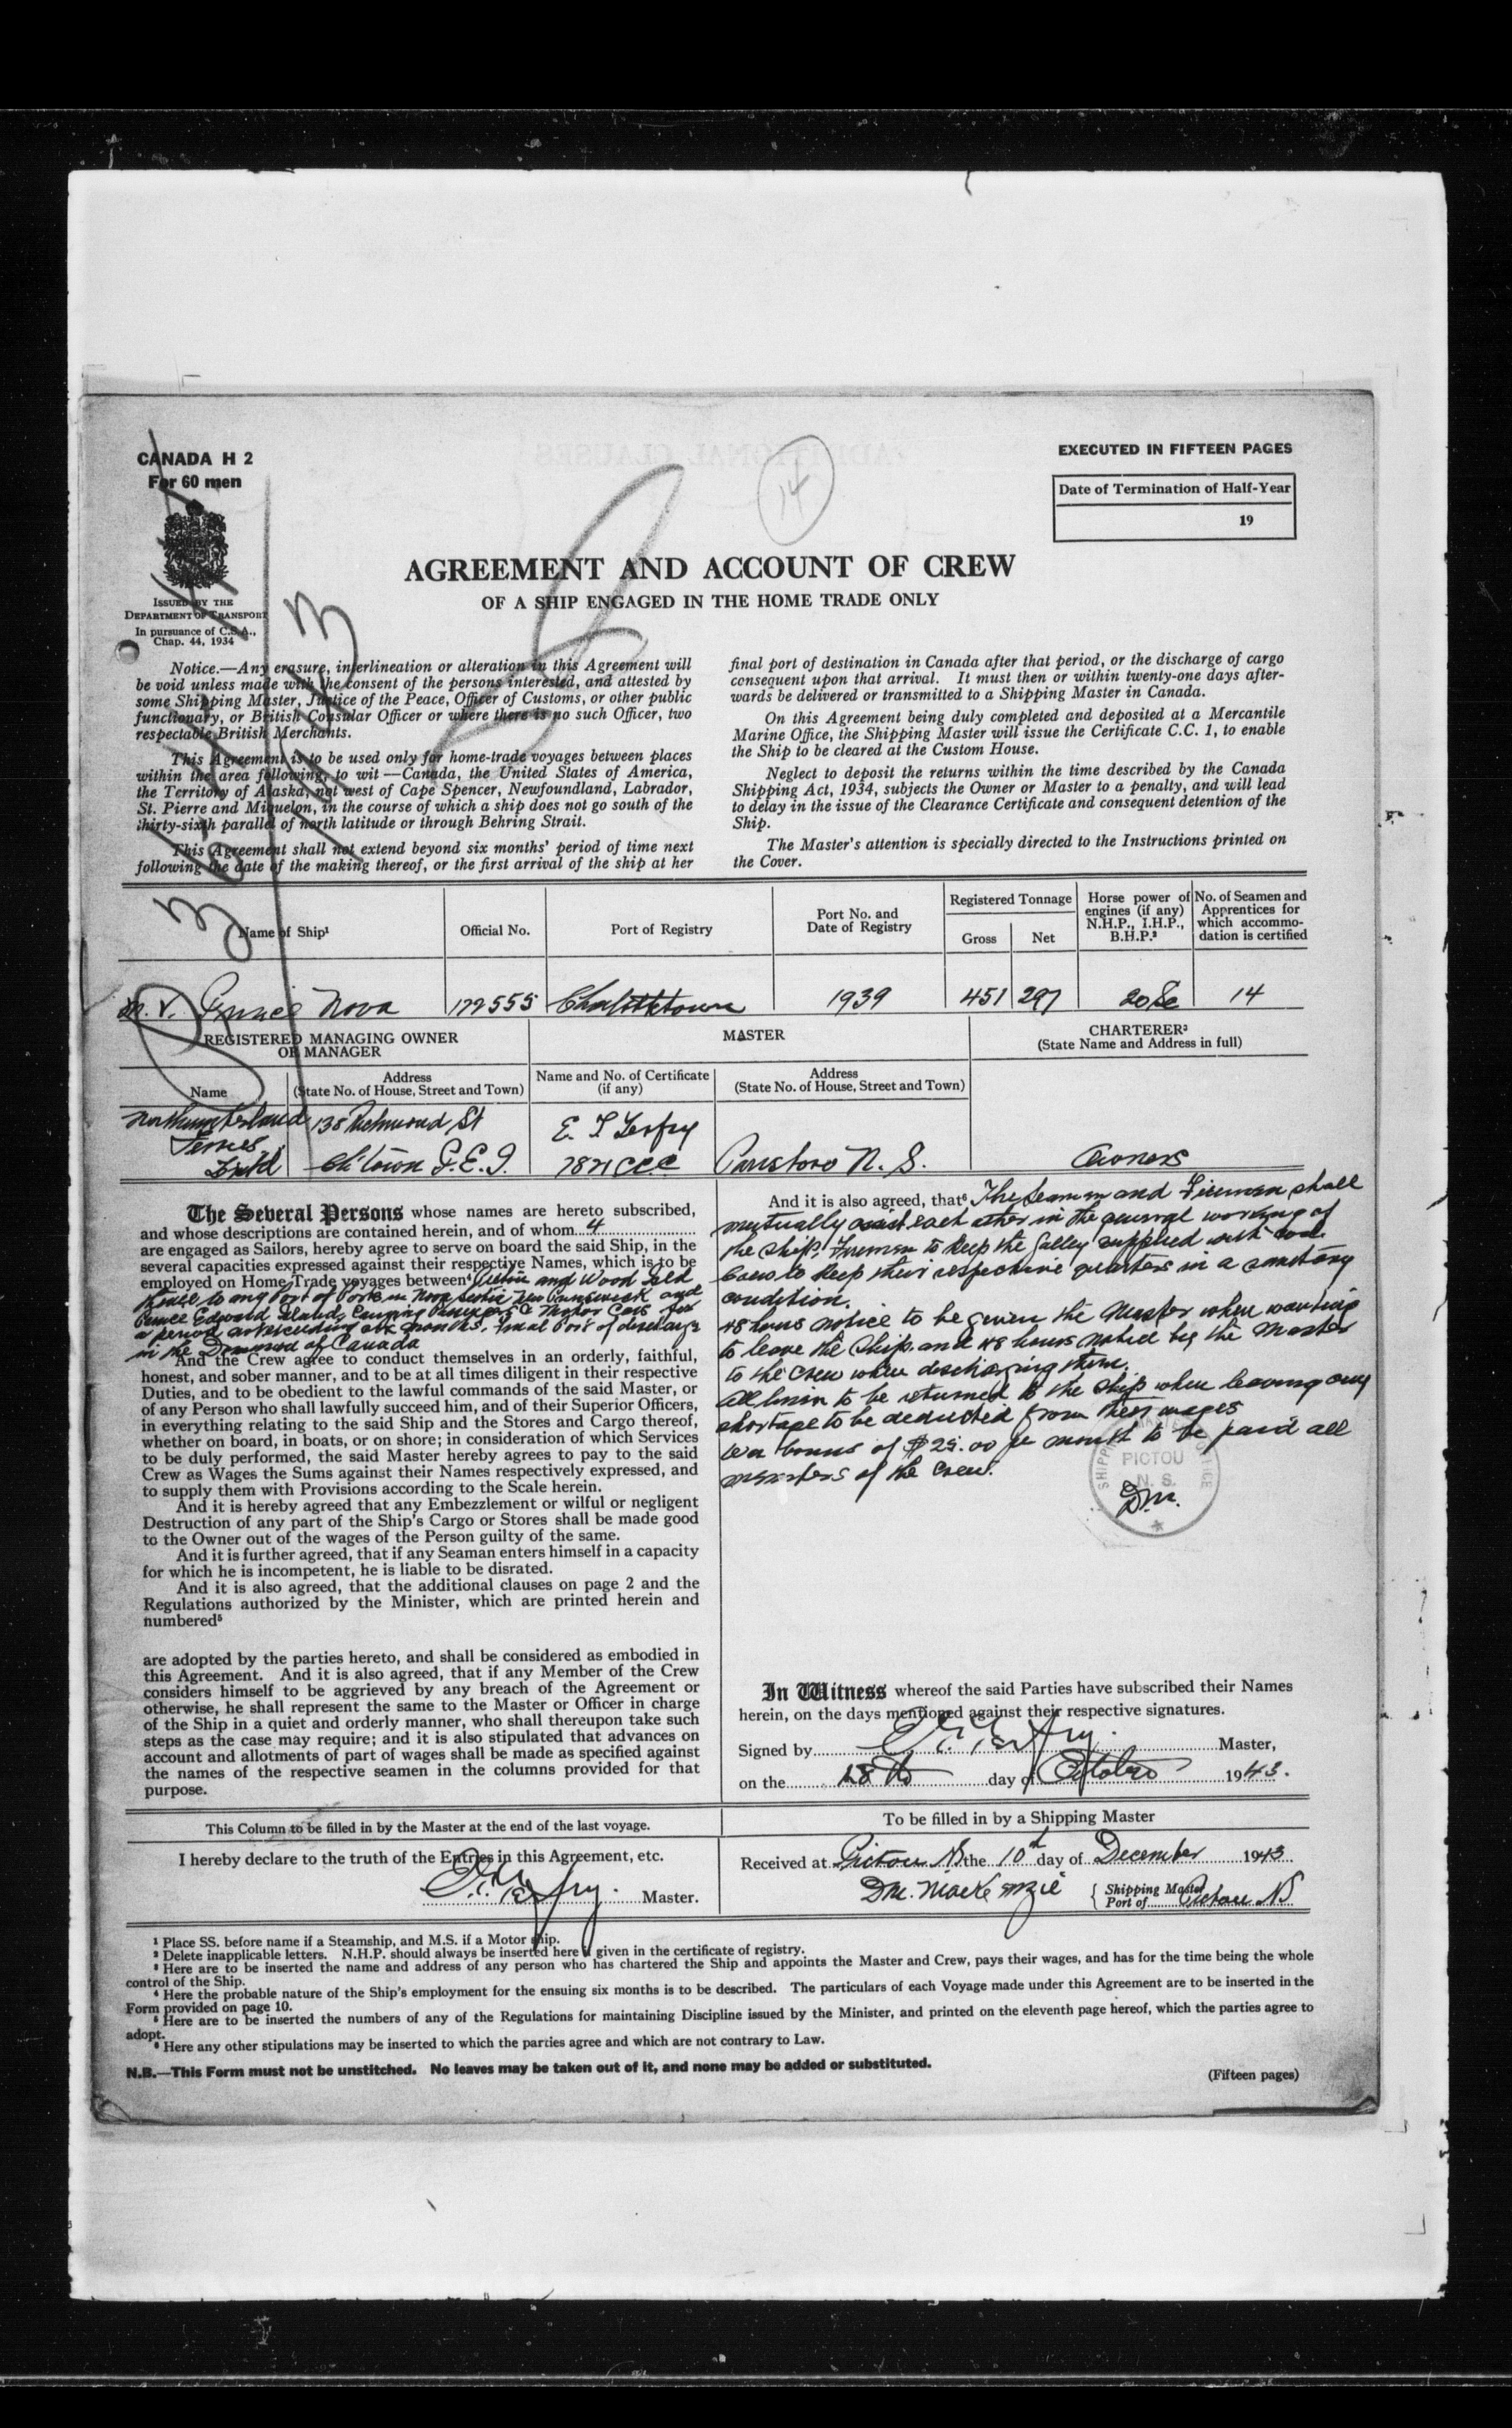 CANADA H 2
For 60 men
ISSUED BY THE
DEPARTMENT OF TRANSPORT
In pursuance of C.S.A.,
Chap. 44, 1934
14
EXECUTED IN FIFTEEN PAGES
Date of Termination of Half-Year
19
AGREEMENT AND ACCOUNT OF CREW
OF A SHIP ENGAGED IN THE HOME TRADE ONLY
Notice.—Any erasure, interlineation or alteration in this Agreement will
be void unless made with the consent of the persons interested, and attested by
some Shipping Master, Justice of the Peace, Officer of Customs, or other public
functionary, or British Consular Officer or where there is no such Officer, two
respectable British Merchants.
This Agreement is to be used only for home-trade voyages between places
within the area following, to wit —Canada, the United States of America,
the Territory of Alaska, not west of Cape Spencer, Newfoundland, Labrador,
St. Pierre and Miquelon, in the course of which a ship does not go south of the
thirty-sixth parallel of north latitude or through Behring Strait.
This Agreement shall not extend beyond six months' period of time next
following the date of the making thereof, or the first arrival of the ship at her
final port of destination in Canada after that period, or the discharge of cargo
consequent upon that arrival. It must then or within twenty-one days after-
wards be delivered or transmitted to a Shipping Master in Canada.
On this Agreement being duly completed and deposited at a Mercantile
Marine Office, the Shipping Master will issue the Certificate C.C. 1, to enable
the Ship to be cleared at the Custom House.
Neglect to deposit the returns within the time described by the Canada
Shipping Act, 1934, subjects the Owner or Master to a penalty, and will lead
to delay in the issue of the Clearance Certificate and consequent detention of the
Ship.
The Master's attention is specially directed to the Instructions printed on
the Cover.
Name of Ship¹
Official No.
Port of Registry
Port No. and
Date of Registry
Registered Tonnage
Gross
Net
Horse power of
engines (if any)
N.H.P., I.H.P.,
B.H.P.²
No. of Seamen and
Apprentices for
which accommo-
dation is certified
M.V. Prince Nova 1939 451 297 14
REGISTERED MANAGING OWNER
OR MANAGER
MASTER
CHARTERER³
(State Name and Address in full)
Name
Address
(State No. of House, Street and Town)
Name and No. of Certificate
(if any)
Address
(State No. of House, Street and Town)
Northumberland 138 Richmond St
Ferries
Ch'town P.E.I. N.S. Owners
The Several Persons whose names are hereto subscribed,
and whose descriptions are contained herein, and of whom 4
are engaged as Sailors, hereby agree to serve on board the said Ship, in the
several capacities expressed against their respective Names, which is to be
employed on Home Trade voyages between⁴ and Wood
thence to any Port or Ports in Nova Scotia New Brunswick and
Prince Edward Island, Carrying Passengers & Motor Cars for
a period not exceeding six months. Final Port of discharge
in the Dominion of Canada
And the Crew agree to conduct themselves in an orderly, faithful,
honest, and sober manner, and to be at all times diligent in their respective
Duties, and to be obedient to the lawful commands of the said Master, or
of any Person who shall lawfully succeed him, and of their Superior Officers,
in everything relating to the said Ship and the Stores and Cargo thereof,
whether on board, in boats, or on shore; in consideration of which Services
to be duly performed, the said Master hereby agrees to pay to the said
Crew as Wages the Sums against their Names respectively expressed, and
to supply them with Provisions according to the Scale herein.
And it is hereby agreed that any Embezzlement or wilful or negligent
Destruction of any part of the Ship's Cargo or Stores shall be made good
to the Owner out of the wages of the Person guilty of the same.
And it is further agreed, that if any Seaman enters himself in a capacity
for which he is incompetent, he is liable to be disrated.
And it is also agreed, that the additional clauses on page 2 and the
Regulations authorized by the Minister, which are printed herein and
numbered⁵
are adopted by the parties hereto, and shall be considered as embodied in
this Agreement. And it is also agreed, that if any Member of the Crew
considers himself to be aggrieved by any breach of the Agreement or
otherwise, he shall represent the same to the Master or Officer in charge
of the Ship in a quiet and orderly manner, who shall thereupon take such
steps as the case may require; and it is also stipulated that advances on
account and allotments of part of wages shall be made as specified against
the names of the respective seamen in the columns provided for that
purpose.
And it is also agreed, that⁶ The Seamen and Firemen shall
mutually assist each other in the general working of
the ship. Firemen to keep the galley supplied with coal.
Crew to keep their respective quarters in a sanitary
condition.
48 hours notice to be given the Master when wanting
to leave the Ship, and 48 hours notice by the Master
to the crew when discharging them.
All linin to be returned to the ship when leaving any
shortage to be deducted from their wages
War bonus of $25.00 per month to be paid all
members of the Crew.
PICTOU
N. S.
D.M.
In Witness whereof the said Parties have subscribed their Names
herein, on the days mentioned against their respective signatures.
Signed by Master,
on the day of October 1943.
This Column to be filled in by the Master at the end of the last voyage.
I hereby declare to the truth of the Entries in this Agreement, etc.
Master.
To be filled in by a Shipping Master
Received at Pictou NS the 10th day of December 1943
DM. MacKenzie
Shipping Master
Port of Pictou NS
¹ Place SS. before name if a Steamship, and M.S. if a Motor ship.
² Delete inapplicable letters. N.H.P. should always be inserted here if given in the certificate of registry.
³ Here are to be inserted the name and address of any person who has chartered the Ship and appoints the Master and Crew, pays their wages, and has for the time being the whole
control of the Ship.
⁴ Here the probable nature of the Ship's employment for the ensuing six months is to be described. The particulars of each Voyage made under this Agreement are to be inserted in the
Form provided on page 10.
⁵ Here are to be inserted the numbers of any of the Regulations for maintaining Discipline issued by the Minister, and printed on the eleventh page hereof, which the parties agree to
adopt.
⁶ Here any other stipulations may be inserted to which the parties agree and which are not contrary to Law.
N.B.—This Form must not be unstitched. No leaves may be taken out of it, and none may be added or substituted.
(Fifteen pages)